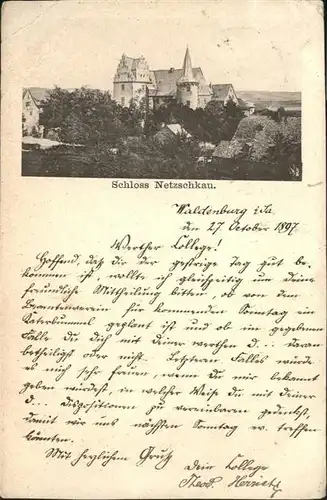 Schloss Netzschkau.
Waldenburg i/Sa
den 27. October 1897
Werther College!
Hoffend, daß dir der gestrige Tag gut be-
kommen ist, wollte ich gleichzeitig um deine
freundliche Mittheilung bitten, ob von dem
Beamtenverein für kommenden Sonntag ein
Katerbummel geplant ist und ob im gegebenen
Falle du dich mit deiner werthen d... daran
betheiligst oder nicht. Letzteren Falles würde
es mich sehr freuen, wenn du mir bekannt
geben würdest, in welcher Weise du mit deiner
d... dispositionen zu vereinbaren gedenkst,
damit wir uns nächsten Sonntag ev. treffen
könnten.
Mit herzlichem Gruß
Dein College
Theod.